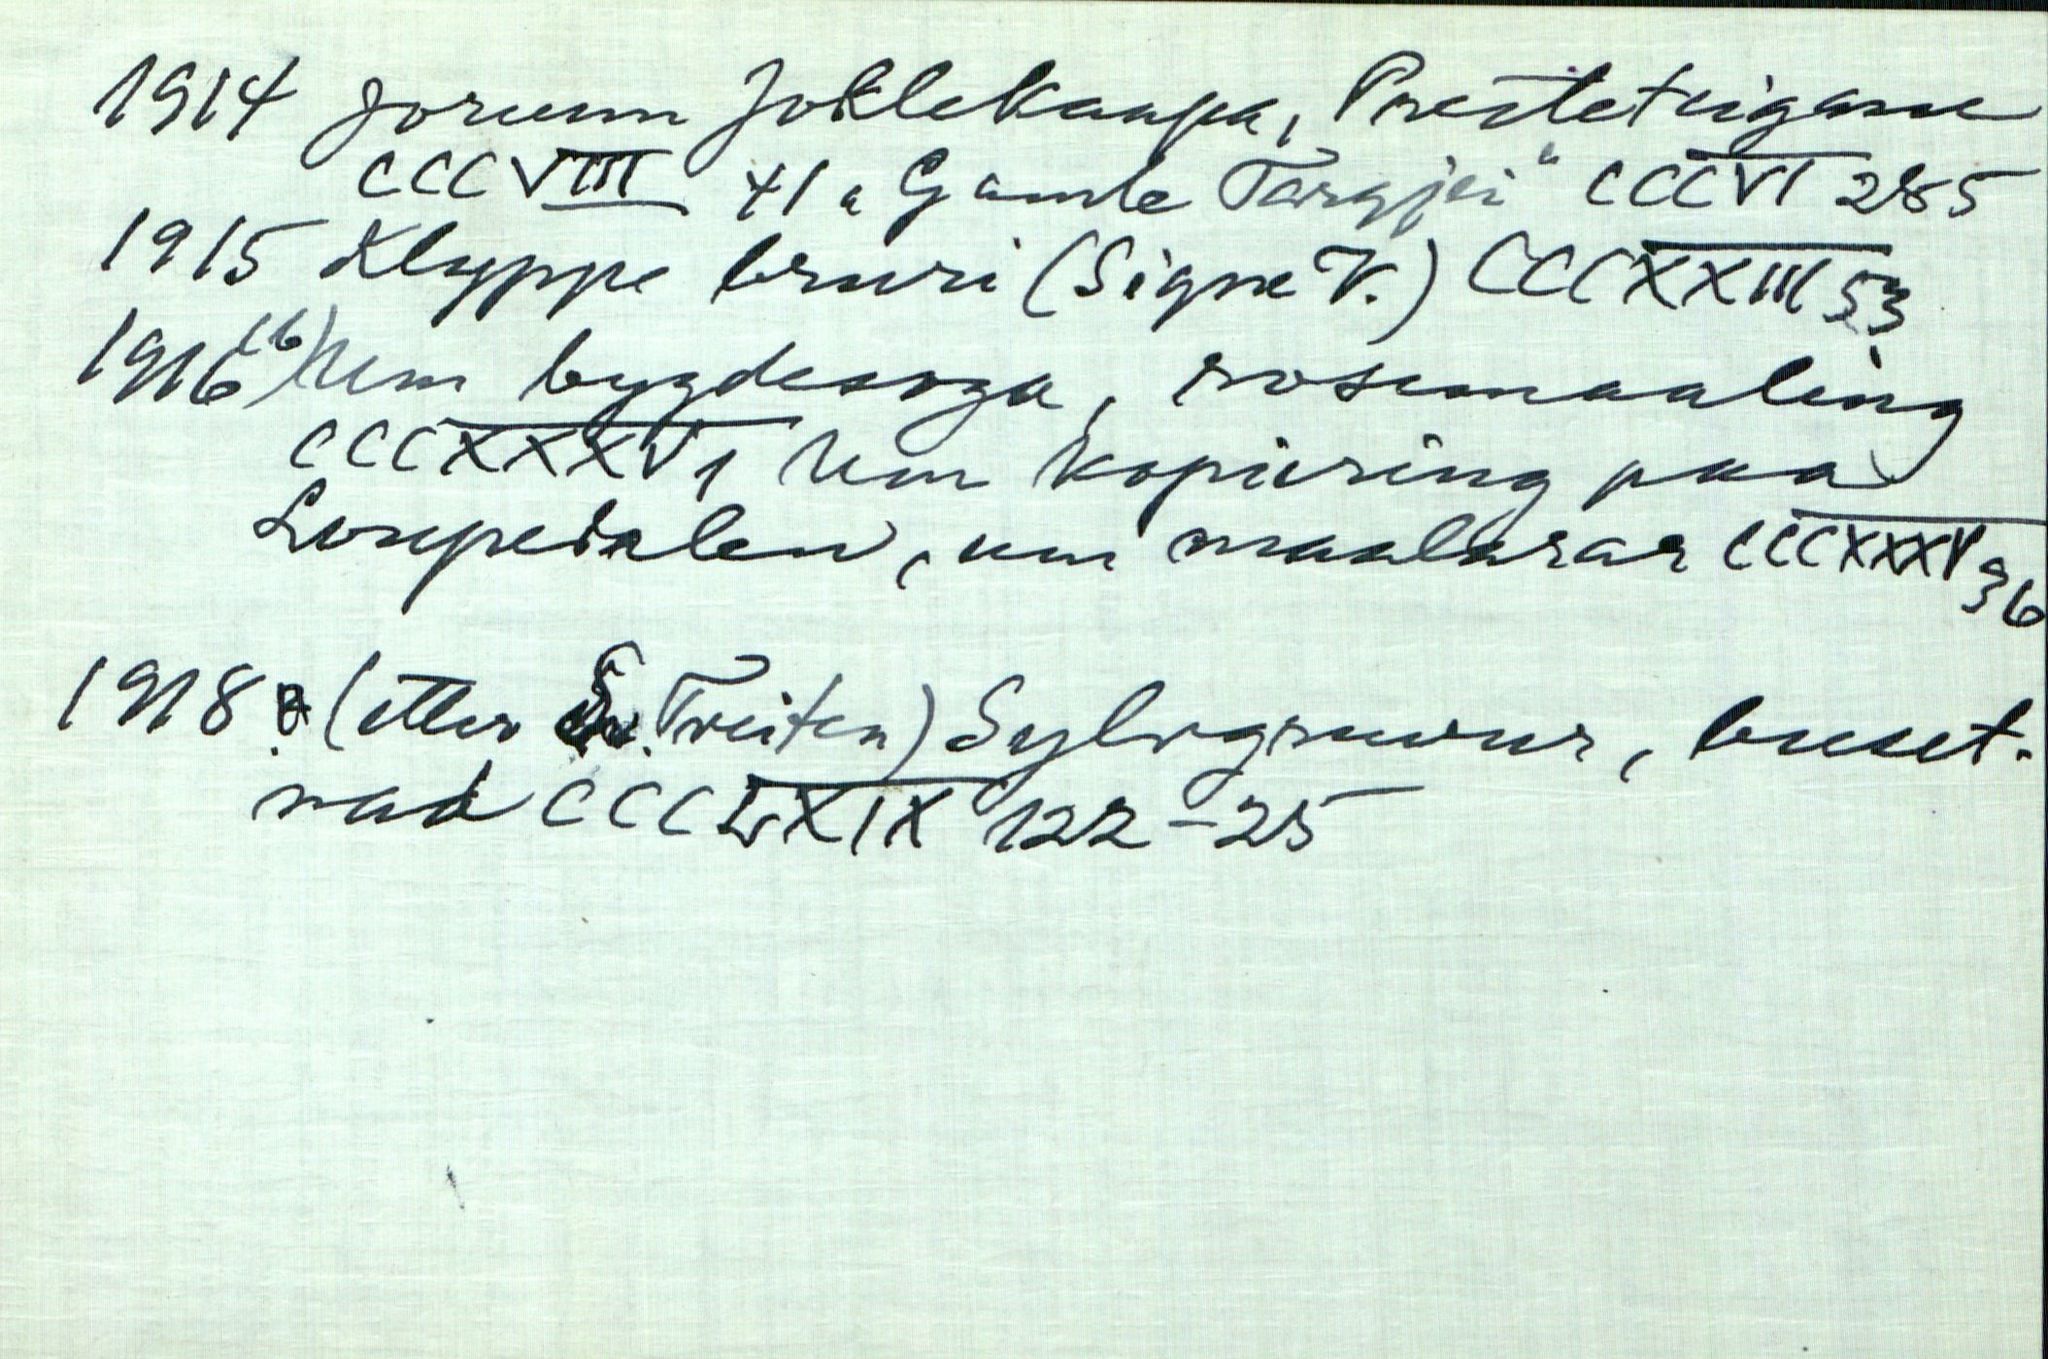 1914 Jorunn Joklekaapa, Presteteigane
CCCVIII 41 „Gamle Targjei" CCCVI 285
1915 Klyppe bruri (Signe V.) CCCXXIII 53
1916 (16) Um bygdesoga, rosemaaling
CCCXXXV 1 Um kopiering paa
, um maalarar CCCXXXV 36
1918 (etter Sv. Treiten) Sylvgruvur, buset-
nad CCCLXIX 122-25